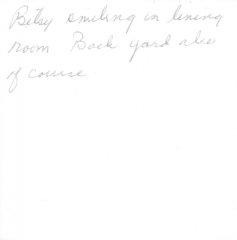 Betsy smiling in lining
room Back yard also
of course